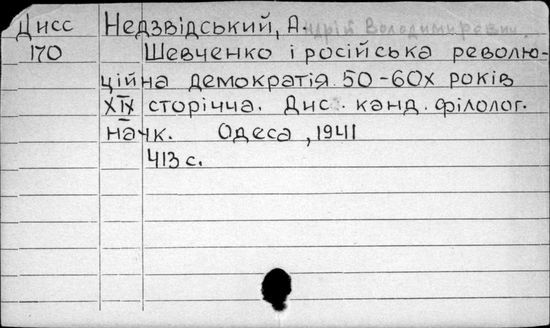 Дисс Недзвідський, А.ндрій Володимирович.
170 Шевченко і російська револю-
ційна демократія 50-60х років
XIX сторіччя. Дис. канд. філолог.
наук. Одеса, 1941
413 с.